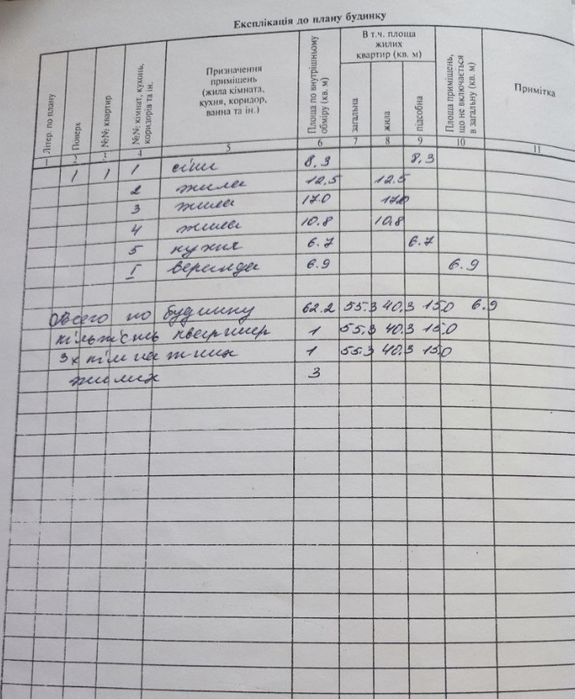 Експлікація до плану будинку
Літер. по плану
Поверх
№№ квартир
№№ кімнат, кухонь, коридорів та ін.
Призначення приміщень (жила кімната, кухня, коридор, ванна та ін.)
Площа по внутрішньому обміру (кв. м)
В т.ч. площа жилих квартир (кв. м)
загальна
жила
підсобна
Площа приміщень, що не включається в загальну (кв. м)
Примітка
1 2 3 4 5 6 7 8 9 10 11
1 1 1 сіни 8.3 8.3
2 жила 12.5 12.5
3 жила 17.0 17.0
4 жила 10.8 10.8
5 кухня 6.7 6.7
I веранда 6.9 6.9
Всего по будинку 62.2 55.3 40.3 15.0 6.9
кількість квартир 1 55.3 40.3 15.0
3х кімнатних 1 55.3 40.3 15.0
жилих 3